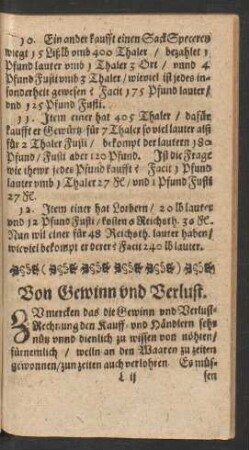 10. Ein ander kaufft einen Sack Spcerey
wiegt 15 Lißlb vmb 400 Thaler / bezahlet 1
Pfund lauter vmb 1 Thaler 3 Ort / vnnd 4
Pfund Fusti vmb 3 Thaler / wieviel ist jedes in-
sonderheit gewesen? Facit 175 Pfund lauter/
vnd 125 Pfund Fusti.
11. Item einer hat 405 Thaler / dafür
kaufft er Gewürtz für 7 Thaler so viel lauter alß
für 2 Thaler Fusti / bekompt der lautern 180
Pfund / Fusti aber 120 Pfund. Ist die Frage
wie thewr jedes Pfund kaufft? Facit 1 Pfund
lauter vmb 1 Thaler 27 ß/ vnd 1 Pfund Fusti
27 ß.
12. Item einer hat Lorbern / 20 lb lauter
vnd 12 Pfund Fusti / kosten 6 Reichsth. 30 ß.
Nun wil einer für 48 Reichsth. lauter haben/
wieviel bekompt er derer? Facit 240 lb lauter.
Von Gewinn vnd Verlust.
ZUmercken das die Gewinn vnd Verlust-
Rechnung den Kauff- vnd Händlern sehr
nütz vnnd dienlich zu wissen von nöhten/
fürnemlich / weiln an den Waaren zu zeiten
gewonnen / zun zeiten auch verlohren. Es müs-
L ij sen